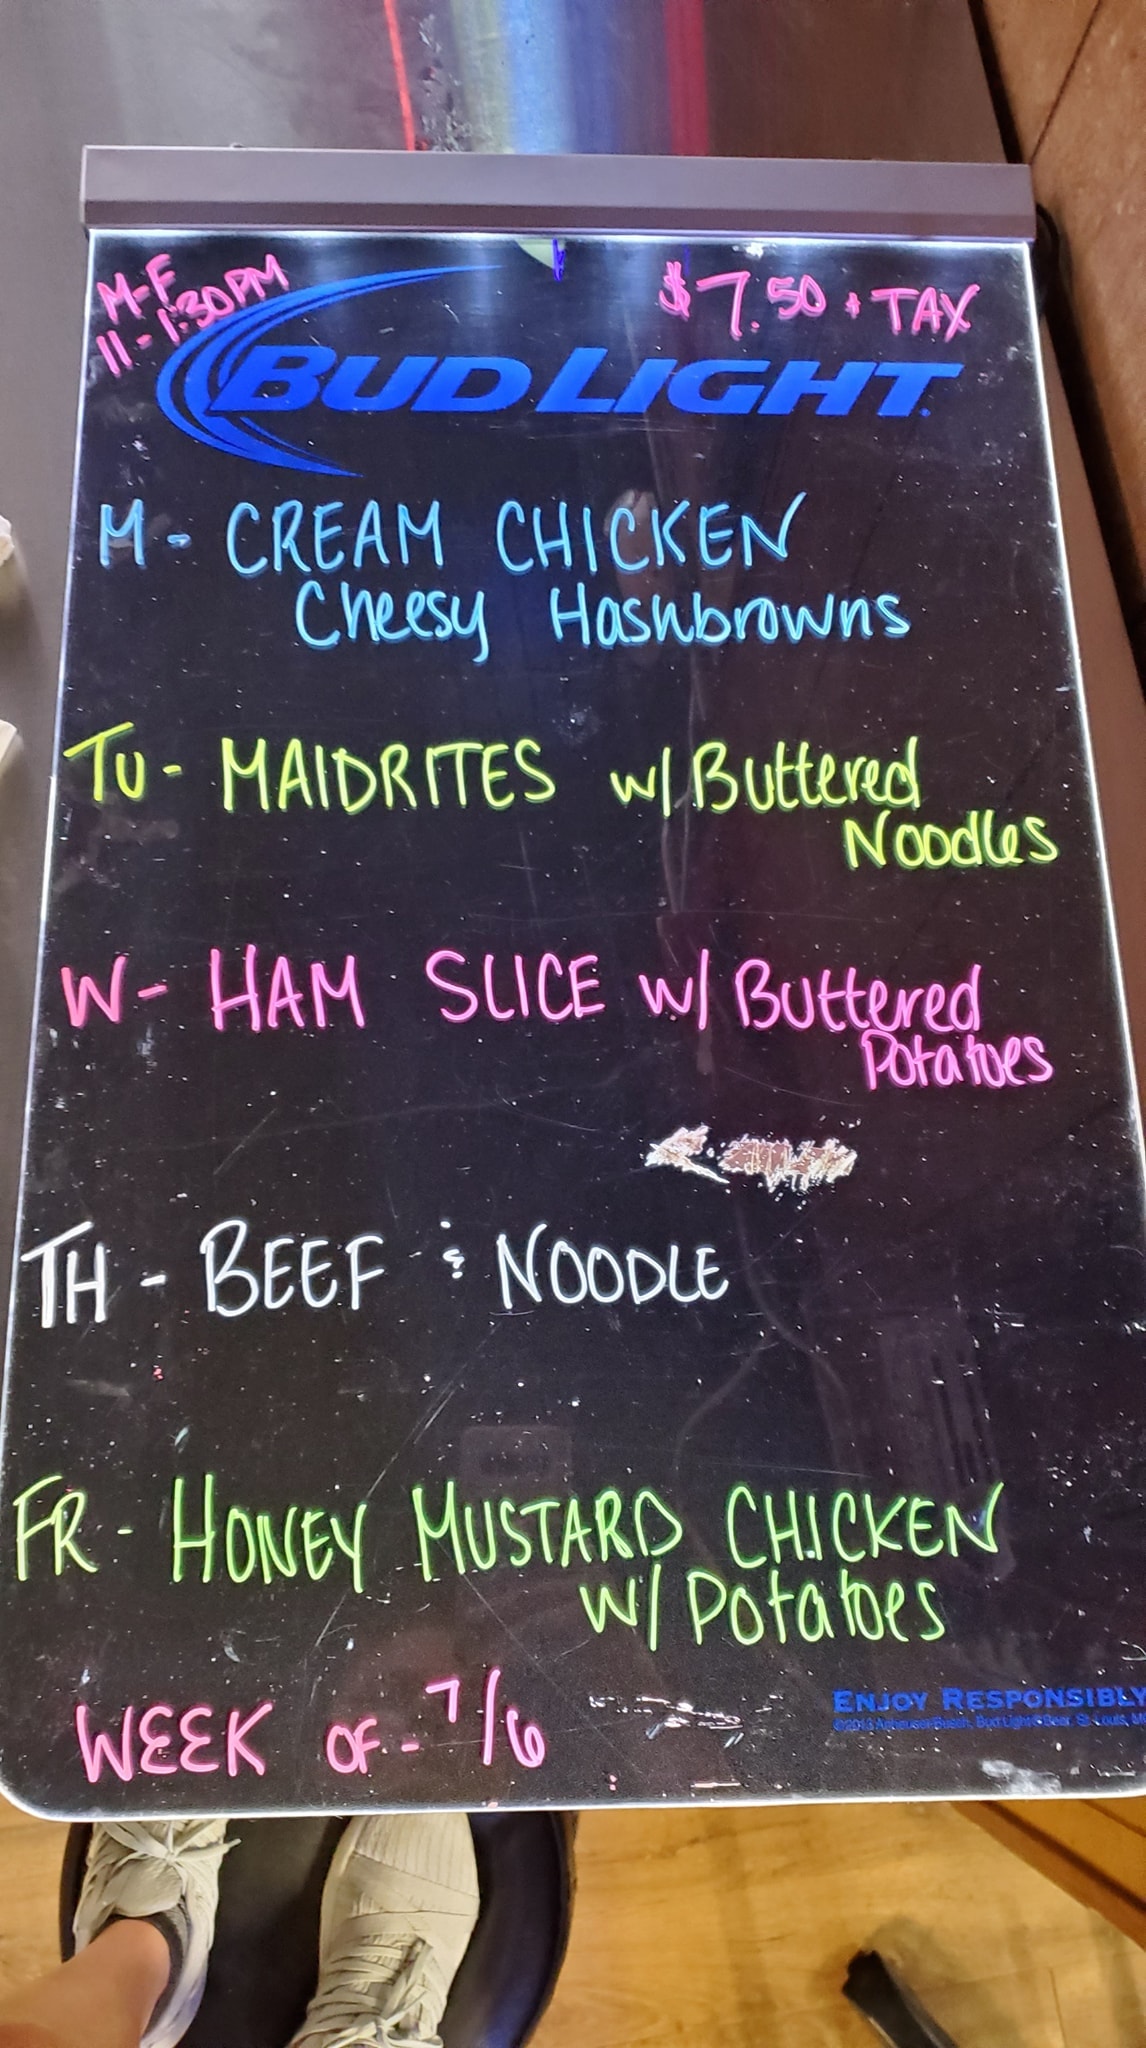 M-F
11-1:30PM
$7.50 + TAX
BUD LIGHT
M - CREAM CHICKEN
Cheesy Hashbrowns
TU - MAIDRITES w/ Buttered
Noodles
W - HAM SLICE w/ Buttered
Potatoes
TH - BEEF & NOODLE
FR - HONEY MUSTARD CHICKEN
w/ Potatoes
WEEK OF - 7/6
ENJOY RESPONSIBLY
Anheuser-Busch, Bud Light® Beer, St. Louis, M